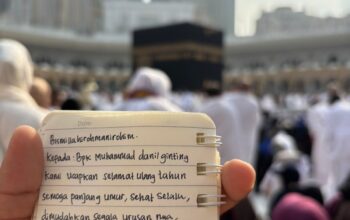 Date
Bismillahirohmanirohim.
Kepada: Bpk Muhammad danil ginting
Kami Ucapkan selamat ulang tahun
semoga panjang umur, sehat selalu,
dimudahkan segala urusan nya,